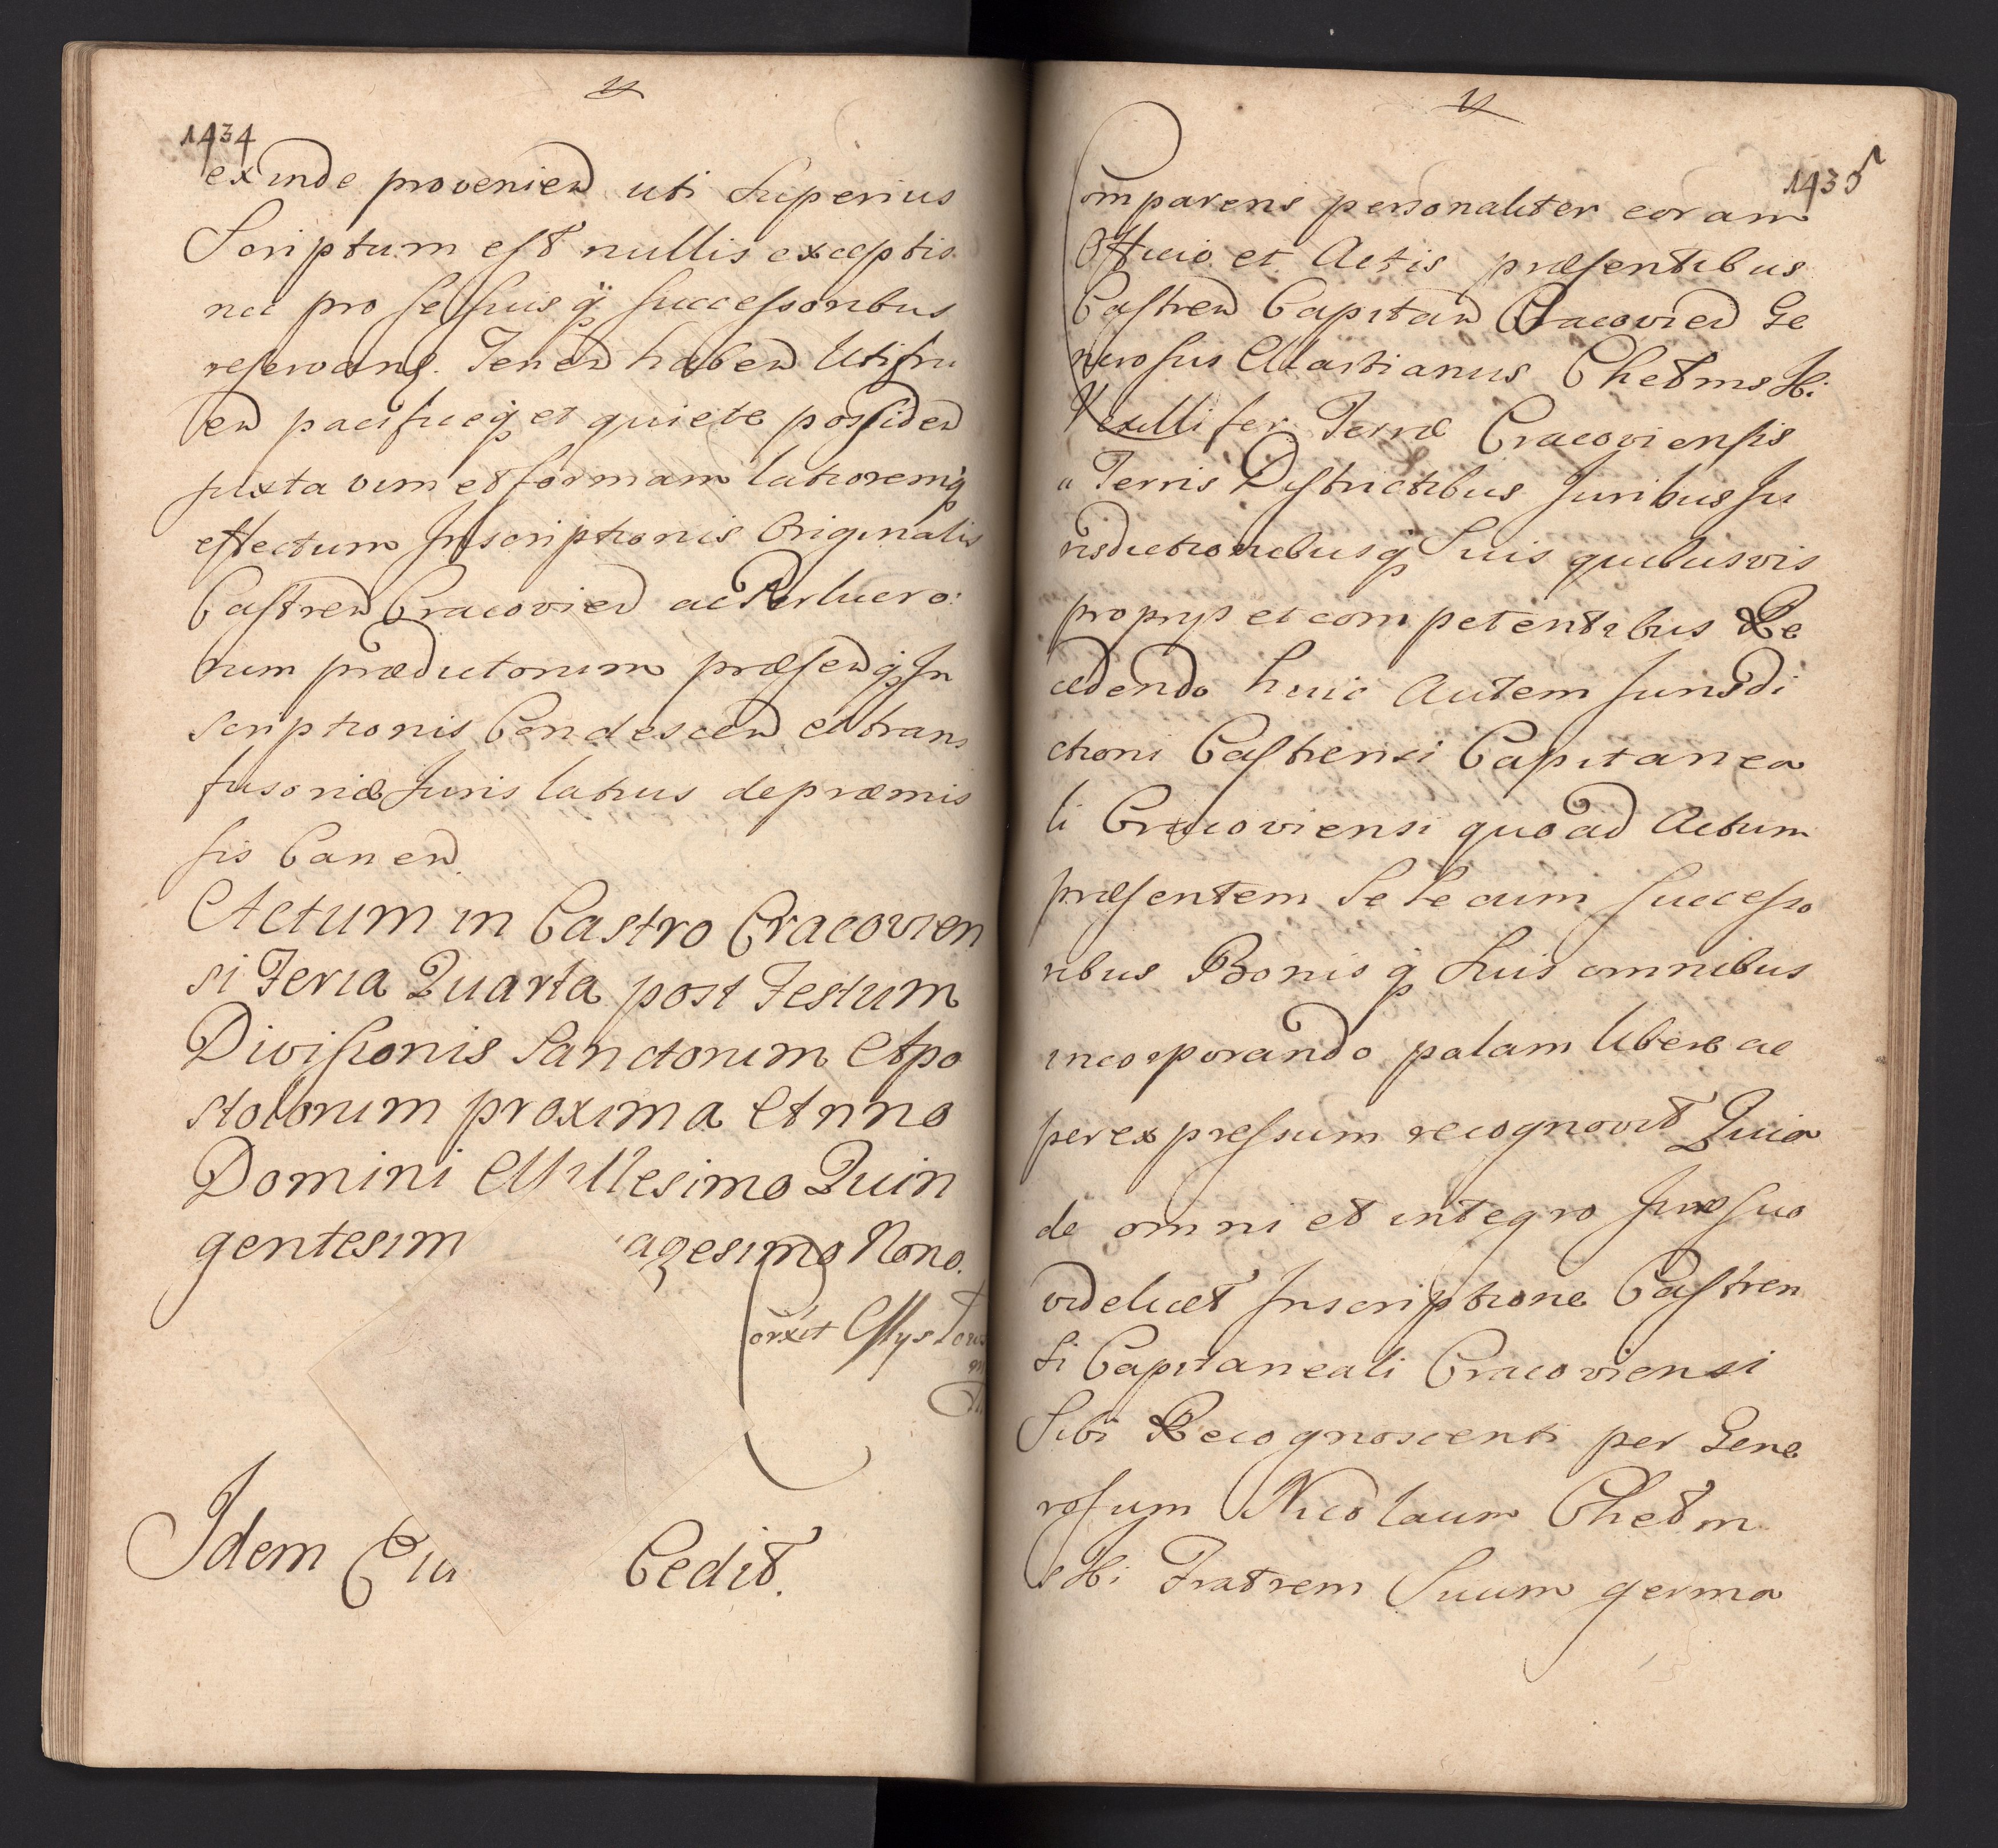 1434
exinde provenien uti Superius
Scriptum est nullis exceptis
nec pro se suisq successoribus
reservans. Tenen haben Utifru
en pacificeq et quiete possiden
juxta vim et formam latioremq
effectum Inscriptionis Originalis
Castren Cracovien ac Perlucro:
rum prædictorum præsenq In
scriptionis Condescen et trans
fusoriæ Juris latius de præmis
sis Canen.
Actum in Castro Cracovien
si Feria Quarta post Festum
Divisionis Sanctorum Apo
stolorum proxima Anno
Domini Millesimo Quin
gentesim agesimo Nono.
Idem Cedit.
1435
Comparens personaliter coram
Officio et Actis præsentibus
Castren Capitan Cracovien Ge
nerosus Martianus Chełmski
Vexillifer Terræ Cracoviensis
a Terris Districtibus Juribus Ju
risdictionibusq Suis quibusvis
proprys et competentibus Re
cedendo huic Autem Jurisdi
ctioni Castrensi Capitanea
li Cracoviensi quoad Actum
præsentem Se Secum Successo
ribus Bonisq Suis omnibus
incorporando palam libere ac
per expressum recognovit Quia
de omni et integro Jure suo
videlicet Inscriptione Castren
si Capitaneali Cracoviensi
Sibi Recognoscenti per Gene
rosum Nicolaum Chełm
ski Fratrem Suum germa